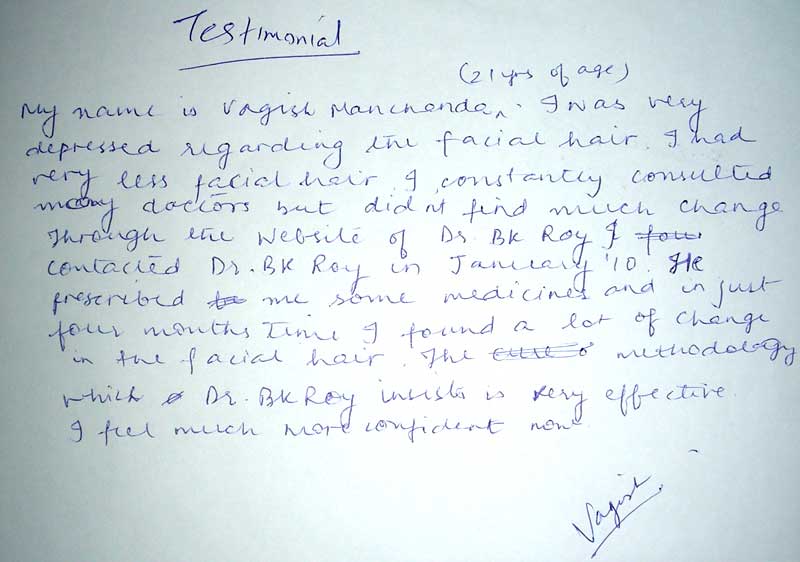 Testimonial
(21 yrs of age)
My name is Vagish Manchanda. I was very
depressed regarding the facial hair. I had
very less facial hair. I constantly consulted
many doctors but didn't find much change
Through the website of Dr. BK Roy I
contacted Dr. BK Roy in January '10. He
prescribed me some medicines and in just
four months time I found a lot of change
in the facial hair. The methodology
which Dr. BK Roy insists is very effective.
I feel much more confident now
Vagish.